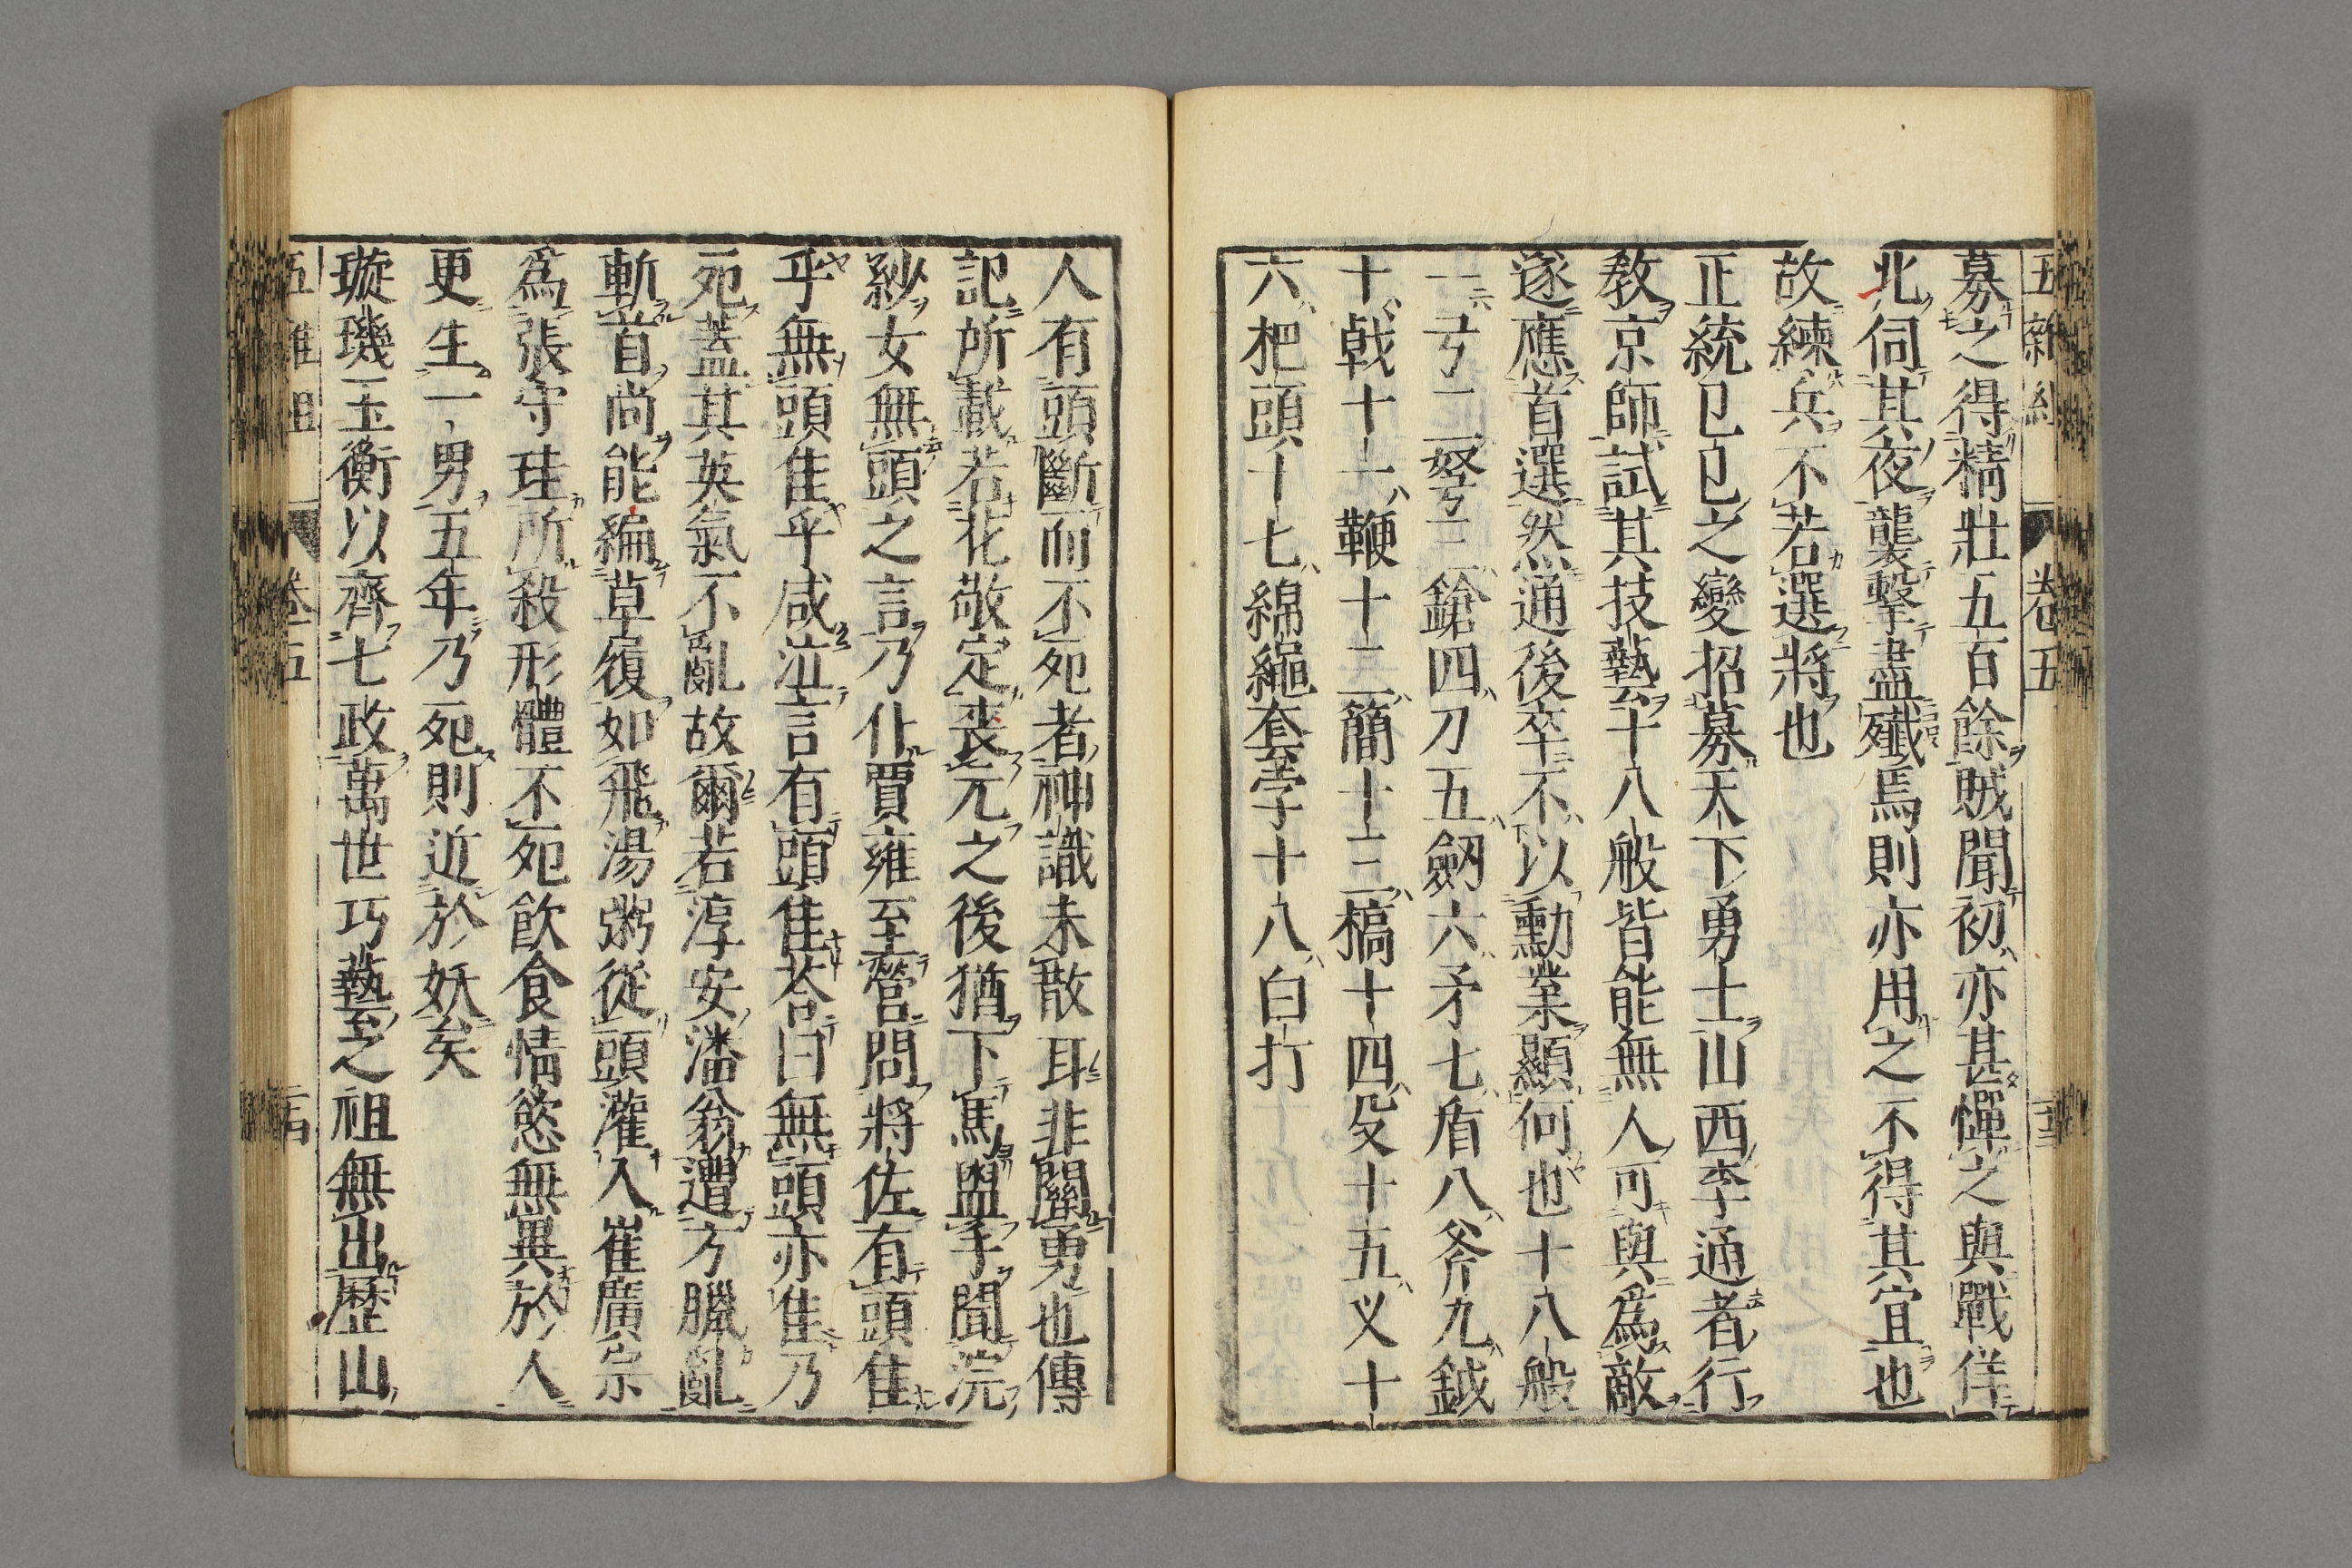 五雜組 卷五
募之得精壯五百餘賊聞初亦甚憚之與戰佯
北伺其夜襲擊盡殲焉則亦用之不得其宜也
故練兵不若選將也
正統已巳之變招募天下勇士山西李通者行
教京師試其技藝十八般皆能無人可與爲敵
遂應首選然通後卒不以勳業顯何也十八般
一弓二弩三鎗四刀五劔六矛七盾八斧九鉞
十戟十一鞭十二簡十三槁十四殳十五义十
六杷頭十七綿繩套學十八白打
人有頭斷而不死者神識未散耳非關勇也傳
記所載若花敬定喪元之後猶下馬盥手聞浣
紗女無頭之言乃仆賈雍至營問將佐有頭隹
乎無頭隹乎咸泣言有頭隹荅曰無頭亦隹乃
死蓋其英氣不亂故爾若淳安潘翁遭方臘亂
斬首尚能編草履如飛湯粥從頭灌入崔廣宗
爲張守珪所殺形體不死飲食情慾無異於人
更生一男五年乃死則近於妖矣
璇璣玉衡以齊七政萬世巧藝之祖無出歷山
五雜組 卷五